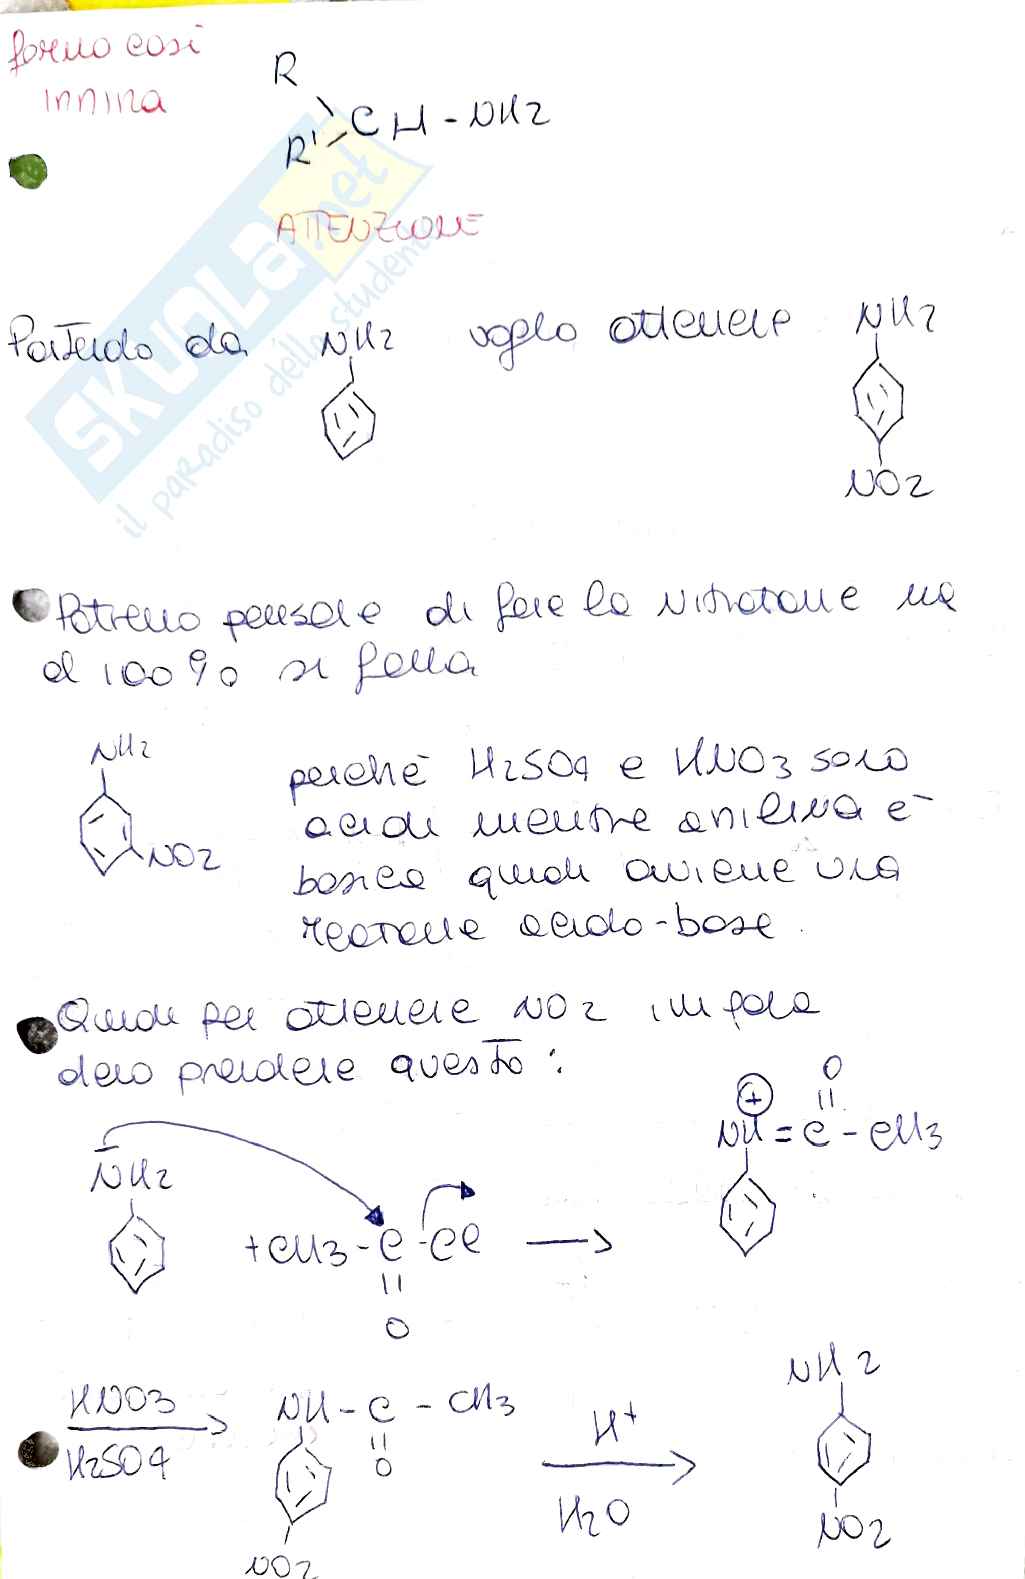 formo così
immina
R
R' CH-NH2
ATTENZIONE
SKUOLA.net
il paradiso dello studente
Partendo da NH2 voglio ottenere NH2
NO2
Potremo pensare di fare la nitrazione ma
al 100% si forma
NH2
NO2
perchè H2SO4 e HNO3 sono
acidi mentre anilina è
basica quindi avviene una
reazione acido-base.
Quindi per ottenere NO2 in para
devo prendere questo:
NH2
+CH3-C-Cl
O
O
+
NH=C-CH3
HNO3
H2SO4
NH-C-CH3
O
NO2
H+
H2O
NH2
NO2